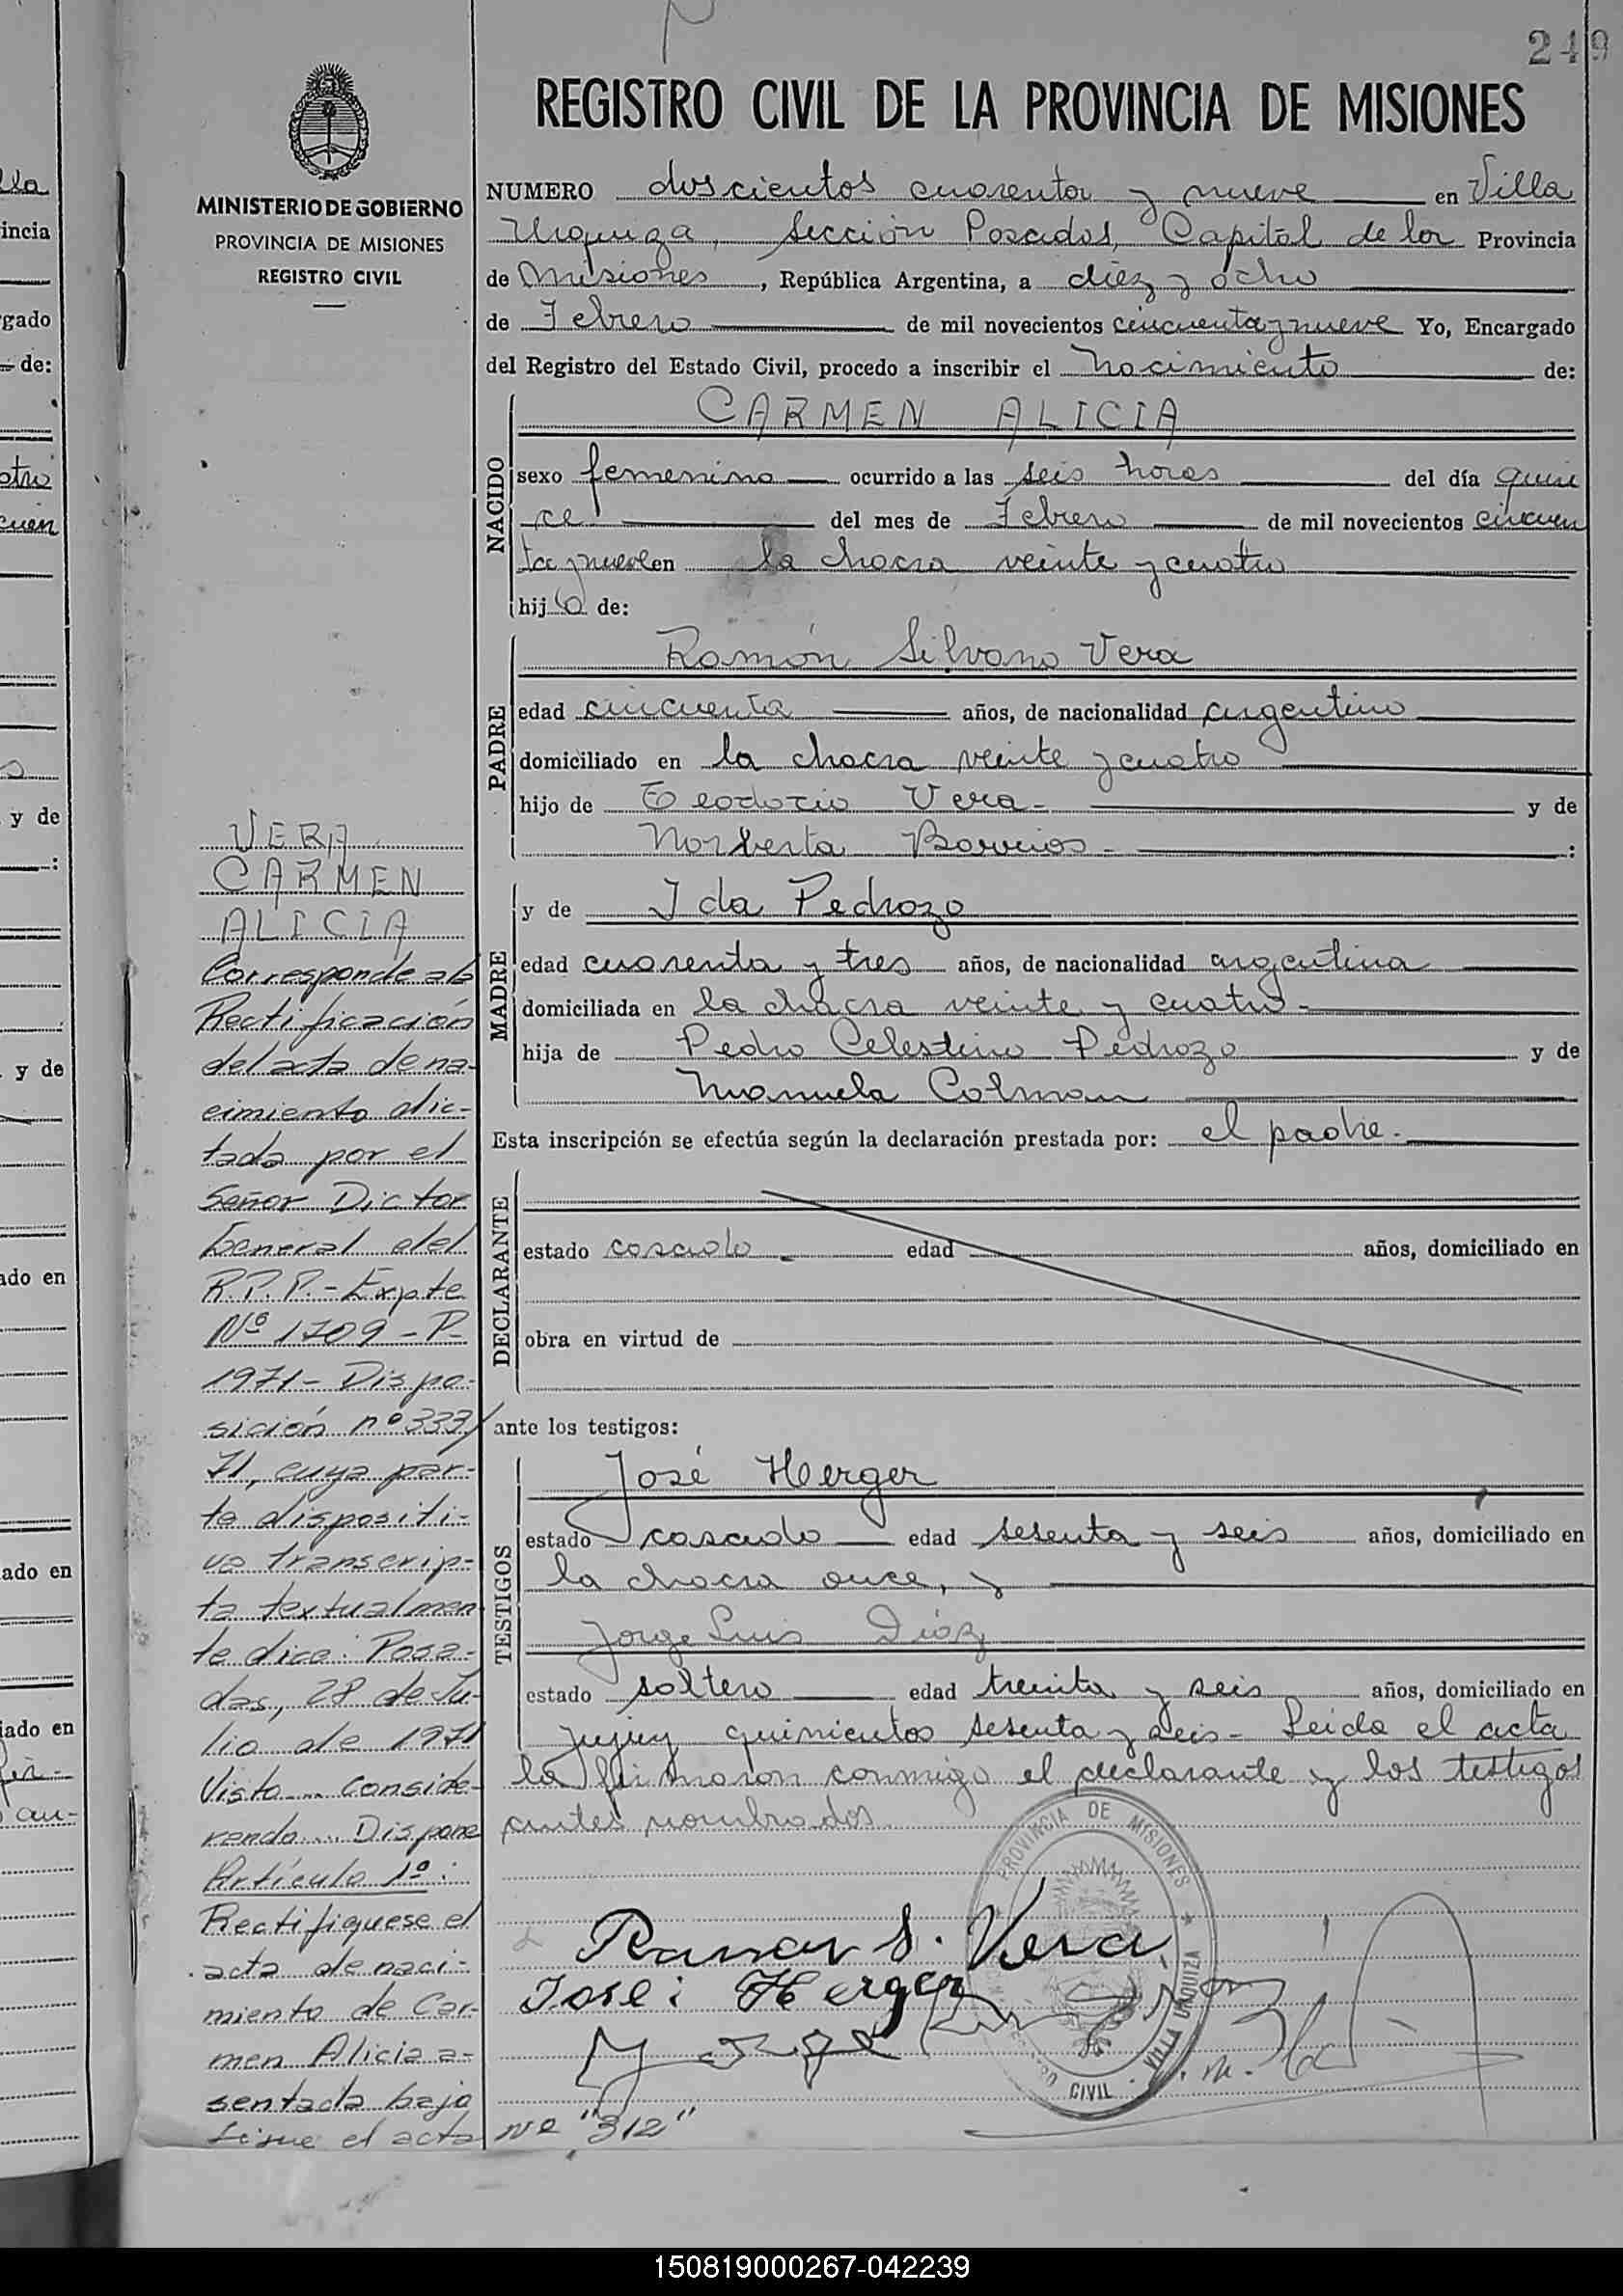 249
REGISTRO CIVIL DE LA PROVINCIA DE MISIONES
MINISTERIO DE GOBIERNO
PROVINCIA DE MISIONES
REGISTRO CIVIL
NUMERO doscientos cuarenta y nueve en Villa
Urquiza, Sección Posadas, Capital de la Provincia
de Misiones, República Argentina, a diez y ocho
de Febrero de mil novecientos cincuenta y nueve Yo, Encargado
del Registro del Estado Civil, procedo a inscribir el Nacimiento de:
NACIDO
CARMEN ALICIA
sexo femenino ocurrido a las seis horas del día quin
ce del mes de Febrero de mil novecientos cincuen
ta y nueve en la chacra veinte y cuatro
hija de:
PADRE
Ramón Silvano Vera
edad cincuenta años, de nacionalidad argentino
domiciliado en la chacra veinte y cuatro
hijo de Teodocio Vera- y de
Norberta Barrios- :
MADRE
y de Ida Pedrozo
edad cuarenta y tres años, de nacionalidad argentina
domiciliada en la chacra veinte y cuatro-
hija de Pedro Celestino Pedrozo y de
Manuela Colman
Esta inscripción se efectúa según la declaración prestada por: el padre.-
DECLARANTE
estado casado - edad años, domiciliado en
obra en virtud de
ante los testigos:
TESTIGOS
José Herger
estado casado edad sesenta y seis años, domiciliado en
la chacra once, y
Jorge Luis Díaz
estado soltero edad treinta y seis años, domiciliado en
Jujuy quinientos sesenta y seis- Leida el acta
la firmaron conmigo el declarante y los testigos
antes nombrados.
Ramon S. Vera
José: Herger
Jorge
PROVINCIA DE MISIONES
VILLA URQUIZA
CIVIL
VERA
CARMEN
ALICIA
Corresponde a la
Rectificación
del acta de na-
cimiento dic-
tada por el
Señor Dictor
General del
R.P.P.- Expte
Nº 1709-P-
1971- Dispo-
sición nº 333/
71, cuya par-
te dispositi-
va transcrip-
ta textualmen
te dice: Posa-
das, 28 de Ju-
lio de 1971
Visto... Conside-
rando... Dispone
Artículo 1º:
Rectifiquese el
acta de naci-
miento de Car-
men Alicia a-
sentada bajo
Sigue el acta Nº "312"
la
incia
gado
de:
otro
cuen
y de
:
y de
ado en
ado en
iado en
150819000267-042239